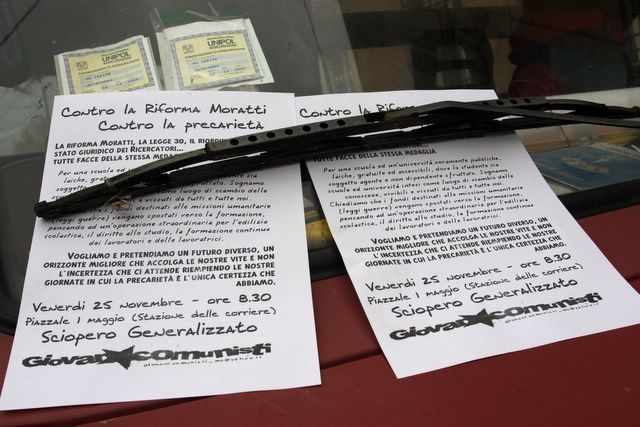 UNIPOL
UNIPOL
Contro la Riforma Moratti
Contro la precarietà
La riforma Moratti, la legge 30, il riordino
stato giuridico dei Ricercatori...
tutte facce della stessa medaglia
Per una scuola ed
laiche, gratuite ed
soggetto
scuola ed
come luogo di scambio delle
e vissuti da tutti e tutte noi.
destinati alle missioni umanitarie
(leggi guerre) vengano spostati verso la formazione,
pensando ad un'operazione straordinaria per l'edilizia
scolastica, il diritto allo studio, la formazione continua
dei lavoratori e delle lavoratrici.
Vogliamo e pretendiamo un futuro diverso, un
orizzonte migliore che accolga le nostre vite e non
l'incertezza che ci attende riempiendo le nostre
giornate in cui la precarietà è l'unica certezza che
abbiamo.
Venerdi 25 novembre - ore 8.30
Piazzale 1 maggio (Stazione delle corriere)
Sciopero Generalizzato
Giovani comunisti
Contro la
Contro la
tutte facce della stessa medaglia
Per una scuola ed un'università veramente pubbliche,
laiche, gratuite ed accessibili, dove lo studente sia
soggetto agente e non di pendente e sfruttato. Sognamo
scuole ed università intesi come luogo di scambio delle
conoscenze, vivibili e vissuti da tutti e tutte noi.
Chiediamo che i fondi destinati alle missioni umanitarie
(leggi guerre) vengano spostati verso la formazione,
pensando ad un'operazione straordinaria per l'edilizia
scolastica, il diritto allo studio, la formazione continua
dei lavoratori e delle lavoratrici.
Vogliamo e pretendiamo un futuro diverso, un
orizzonte migliore che accolga le nostre vite e non
l'incertezza che ci attende riempiendo le nostre
giornate in cui la precarietà è l'unica certezza che
abbiamo.
Venerdi 25 novembre - ore 8.30
Piazzale 1 maggio (Stazione delle corriere)
Sciopero Generalizzato
Giovani comunisti